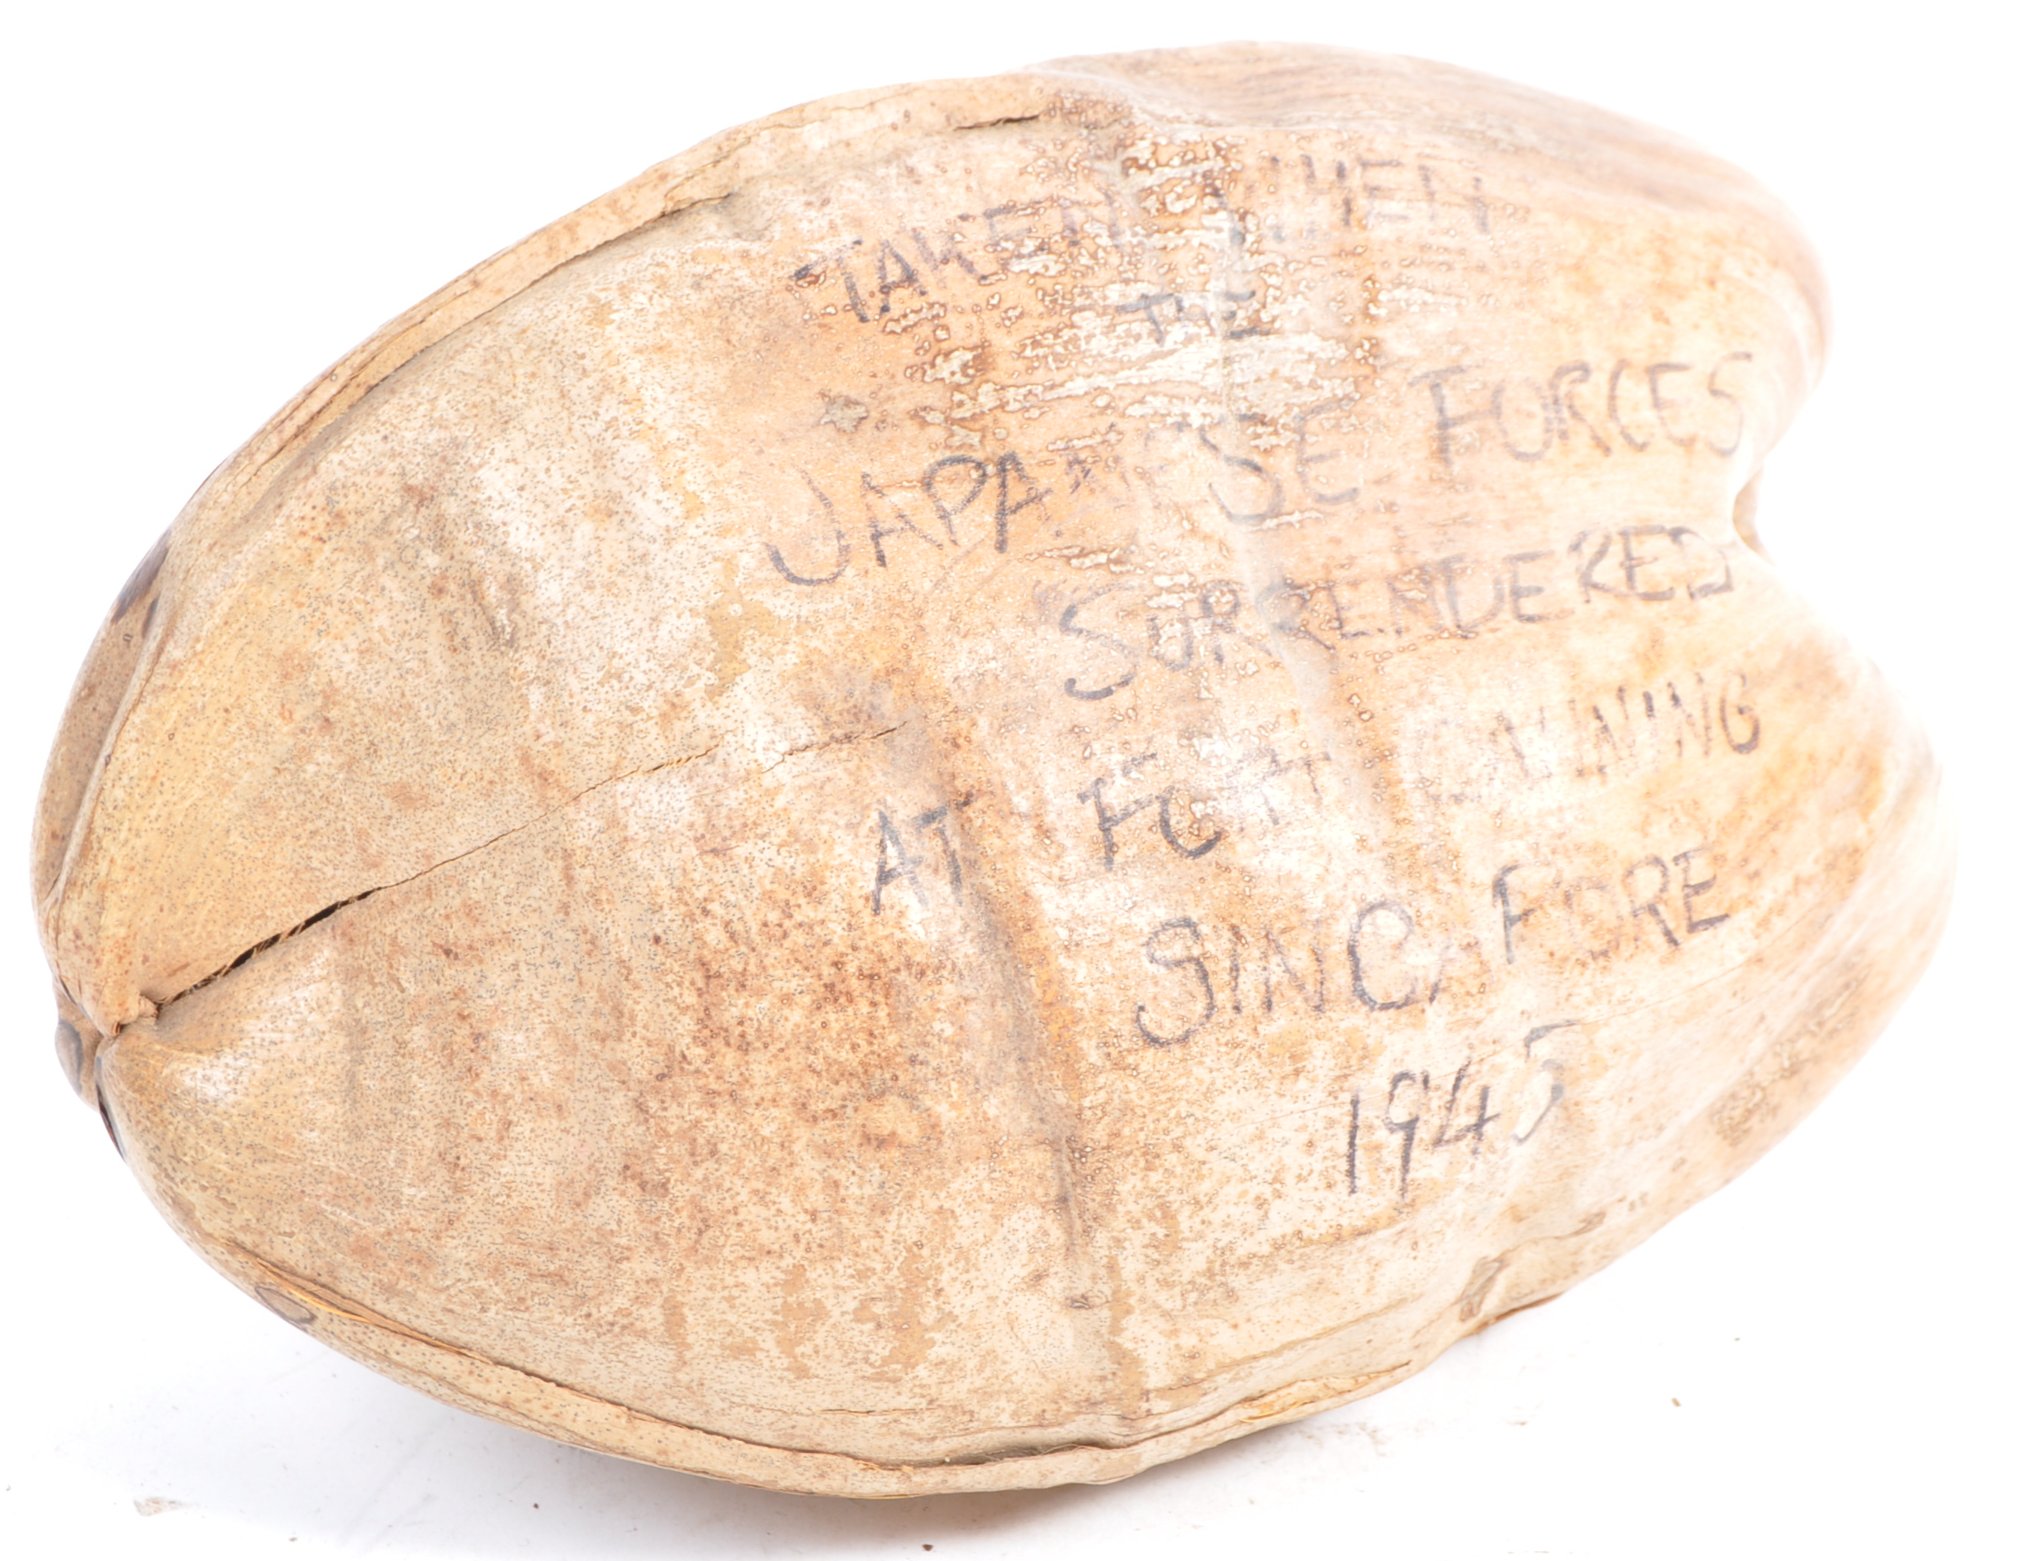 TAKEN WHEN
THE
JAPANESE FORCES
SURRENDERED
AT FORT CANNING
SINGAPORE
1945